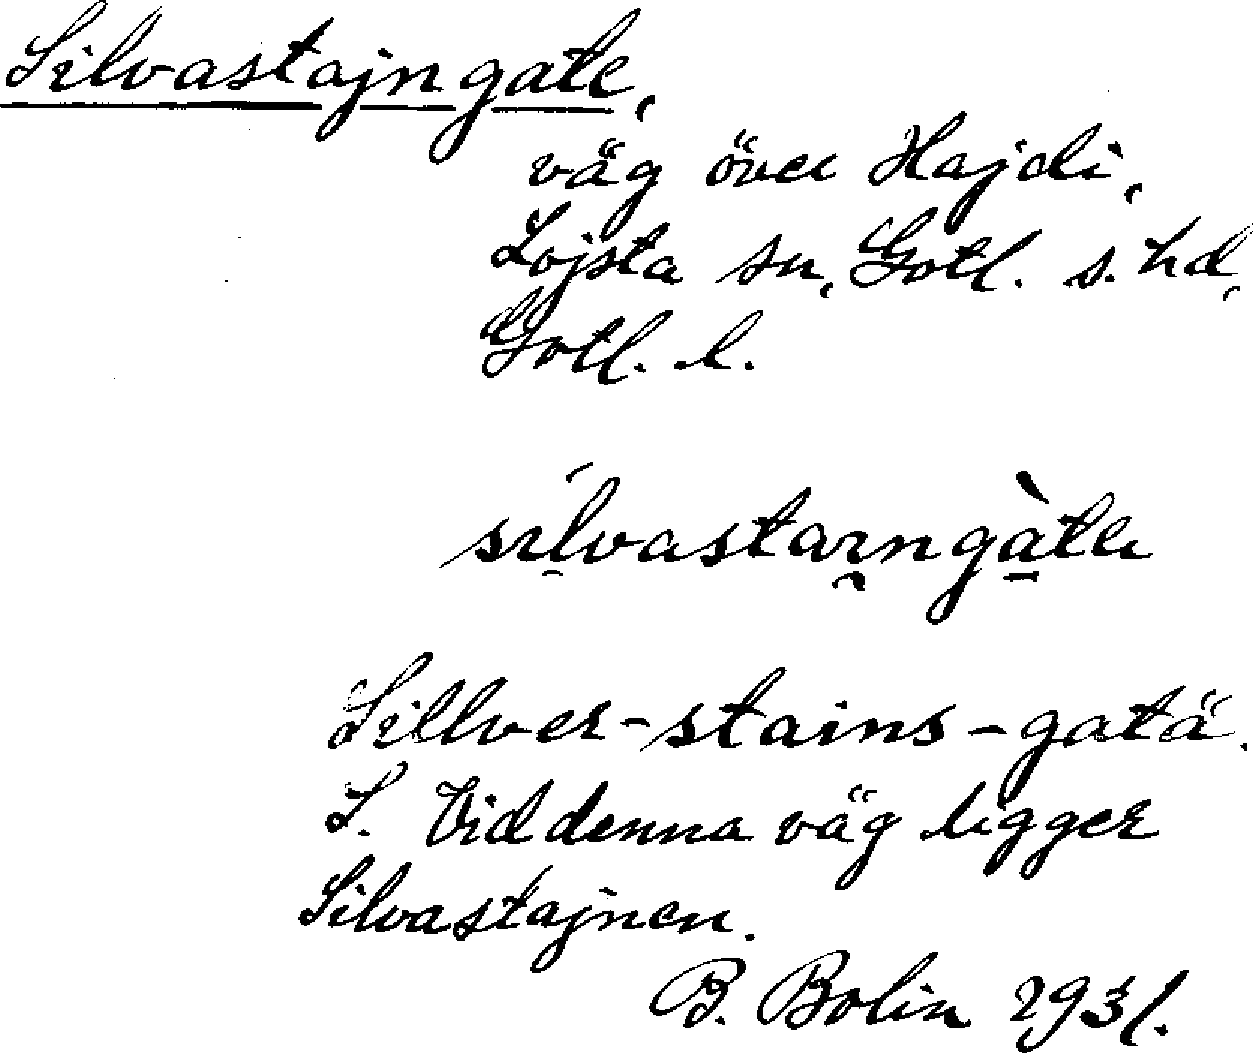 Silvastajngate,
väg över Hajdi,
Lojsta sn, Gotl. s. hd,
Gotl. l.
silvastaıngàtɐ
Sillver-stains-gatä.
S. Vid denna väg ligger
Silvastajnen.
B. Bolin 1931.